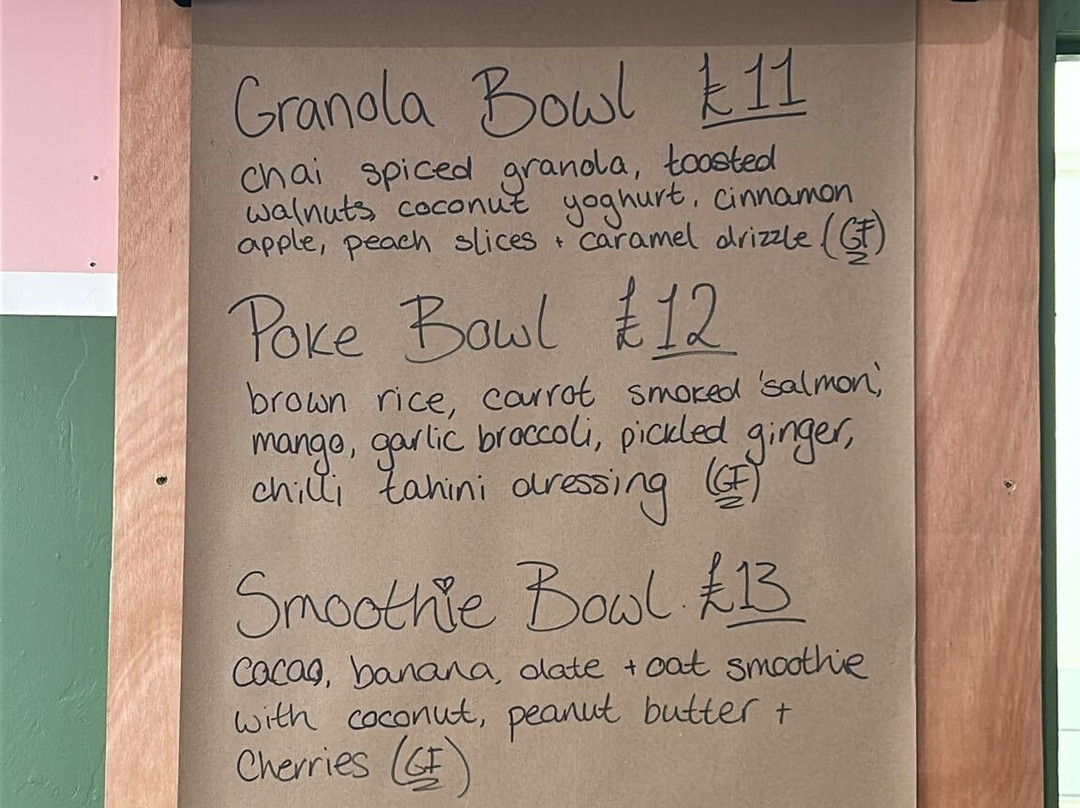 Granola Bowl £11
chai spiced granola, toasted
walnuts, coconut yoghurt, cinnamon
apple, peach slices + caramel drizzle (GF)
Poke Bowl £12
brown rice, carrot smoked 'salmon',
mango, garlic broccoli, pickled ginger,
chilli tahini dressing (GF)
Smoothie Bowl £13
cacao, banana, date + oat smoothie
with coconut, peanut butter +
Cherries (GF)